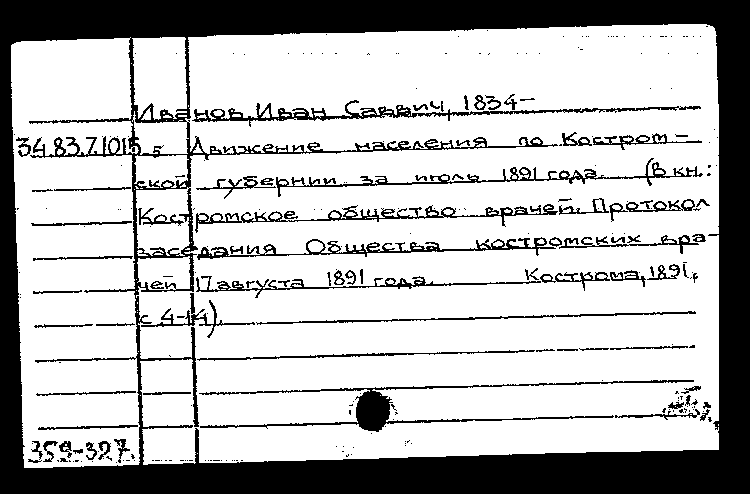 Иванов, Иван Саввич, 1834-
34.83.7.1015 5 Движение населения по Костром-
ской губернии за июль 1891 года. (В кн.:
Костромское общество врачей. Протокол
заседания Общества костромских вра-
чей 17 августа 1891 года. Кострома, 1891,
с 4-14).
359-327.